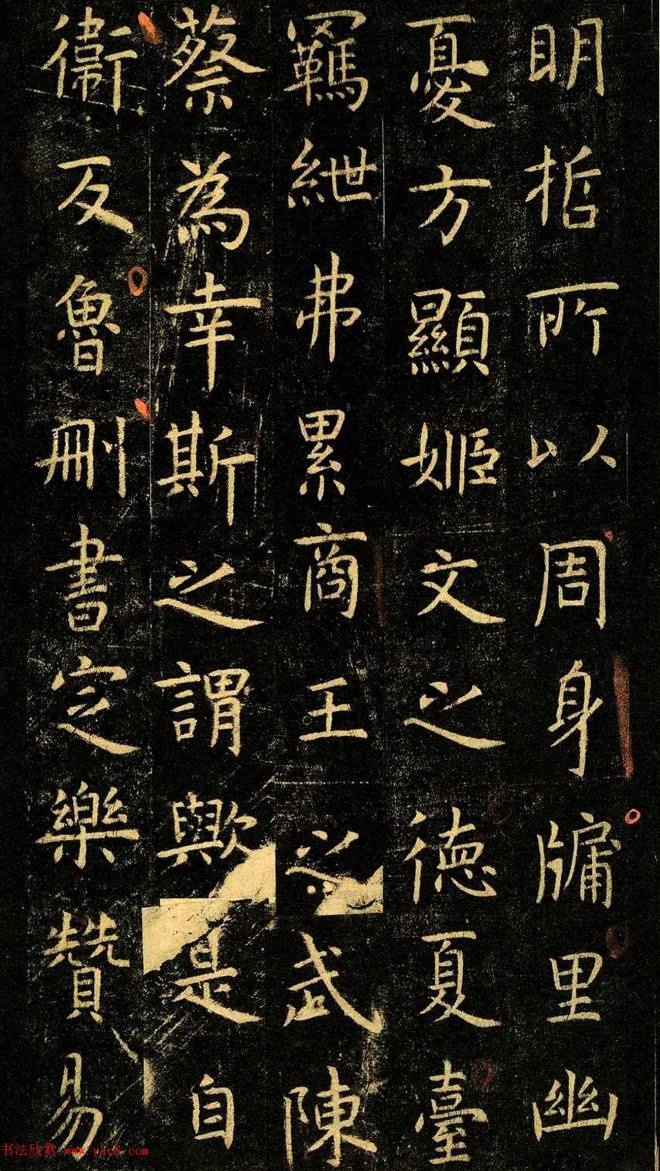 明哲所以周身牖里幽
憂方顯姬文之德夏臺
羈紲弗累商王之武陳
蔡為幸斯之謂歟是自
衞反魯刪書定樂贊易
书法欣赏 www.yac8.com